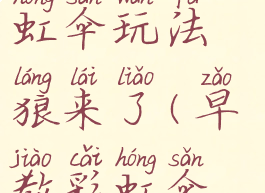 hóng sǎn wán fǎ
虹伞玩法
láng lái liǎo zǎo
狼来了(早
jiào cǎi hóng sǎn
教彩虹伞